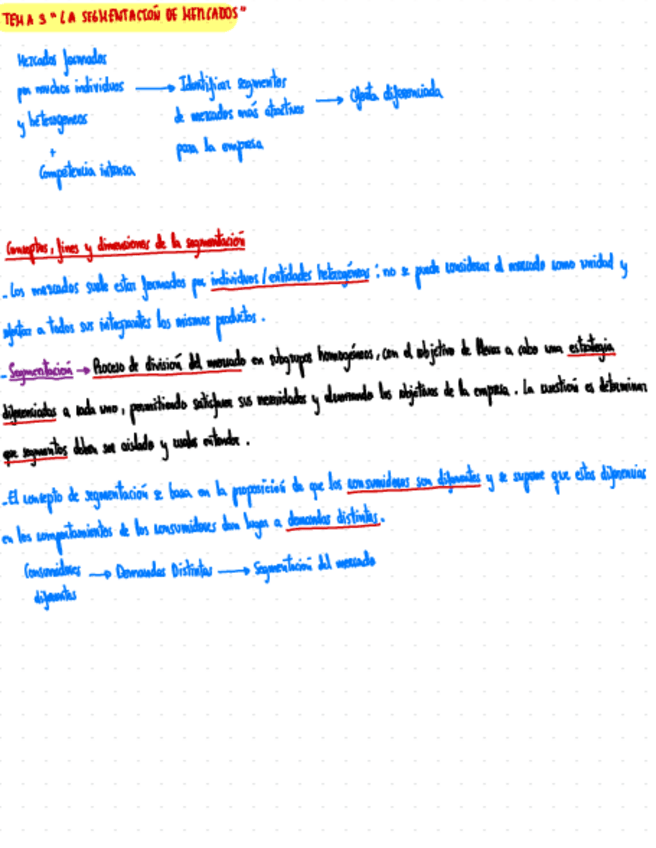 TEMA 3 "LA SEGMENTACIÓN DE MERCADOS"
Mercados formados
por muchos individuos → Identificar segmentos
y heterogeneos de mercados más atractivos → Oferta diferenciada
+ para la empresa
Competencia intensa
Conceptos, fines y dimensiones de la segmentación
- Los mercados suele estar formados por individuos/entidades heterogéneas: no se puede considerar al mercado como unidad y
ofertar a todos sus integrantes los mismos productos.
- Segmentación → Proceso de división del mercado en subgrupos homogéneos, con el objetivo de llevar a cabo una estrategia
diferenciada a cada uno, permitiendo satisfacer sus necesidades y alcanzando los objetivos de la empresa. La cuestión es determinar
que segmentos deben ser aislado y cuales
- El concepto de segmentación se basa en la proposición de que los consumidores son diferentes y se supone que estas diferencias
en los comportamientos de los consumidores dan lugar a demandas distintas.
Consumidores → Demandas Distintas → Segmentación del mercado
diferentes